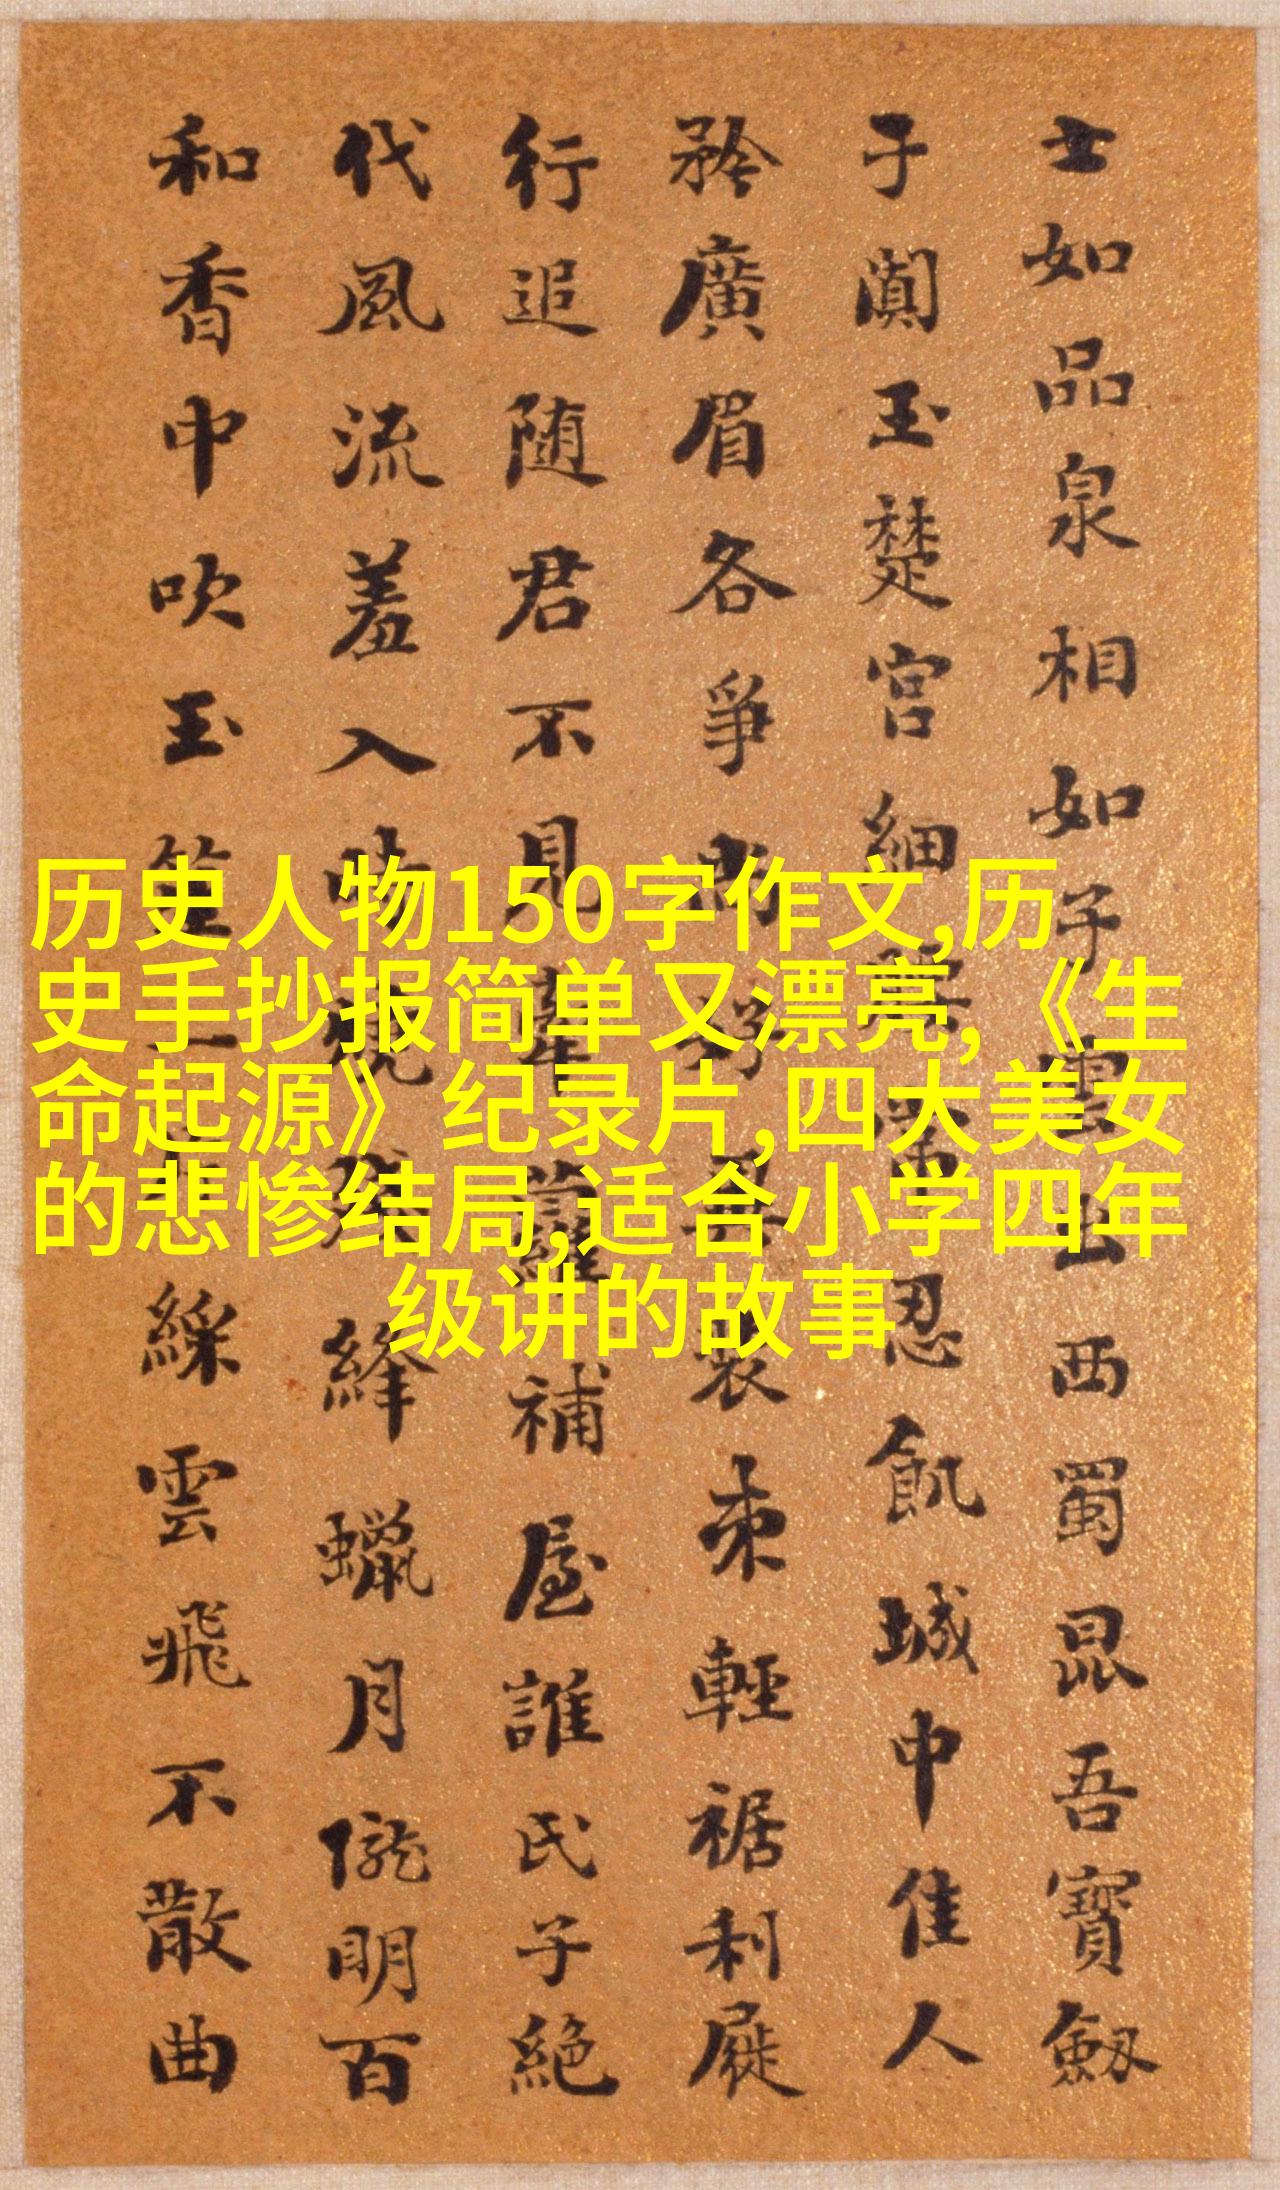 士如品泉相如子雲出西蜀昆吾寶劒
子闐玉楚宮細忍飢城中佳人
矜廣眉各爭尚好異裝束輕裾利屣
行追随君不見牽蘿補屋誰氏子絕
代風流羞入時絳蠟月隴明百
和香中吹玉笙一片綵雲飛不散曲
历史人物150字作文,历
史手抄报简单又漂亮,《生
命起源》纪录片,四大美女
的悲惨结局,适合小学四年
级讲的故事